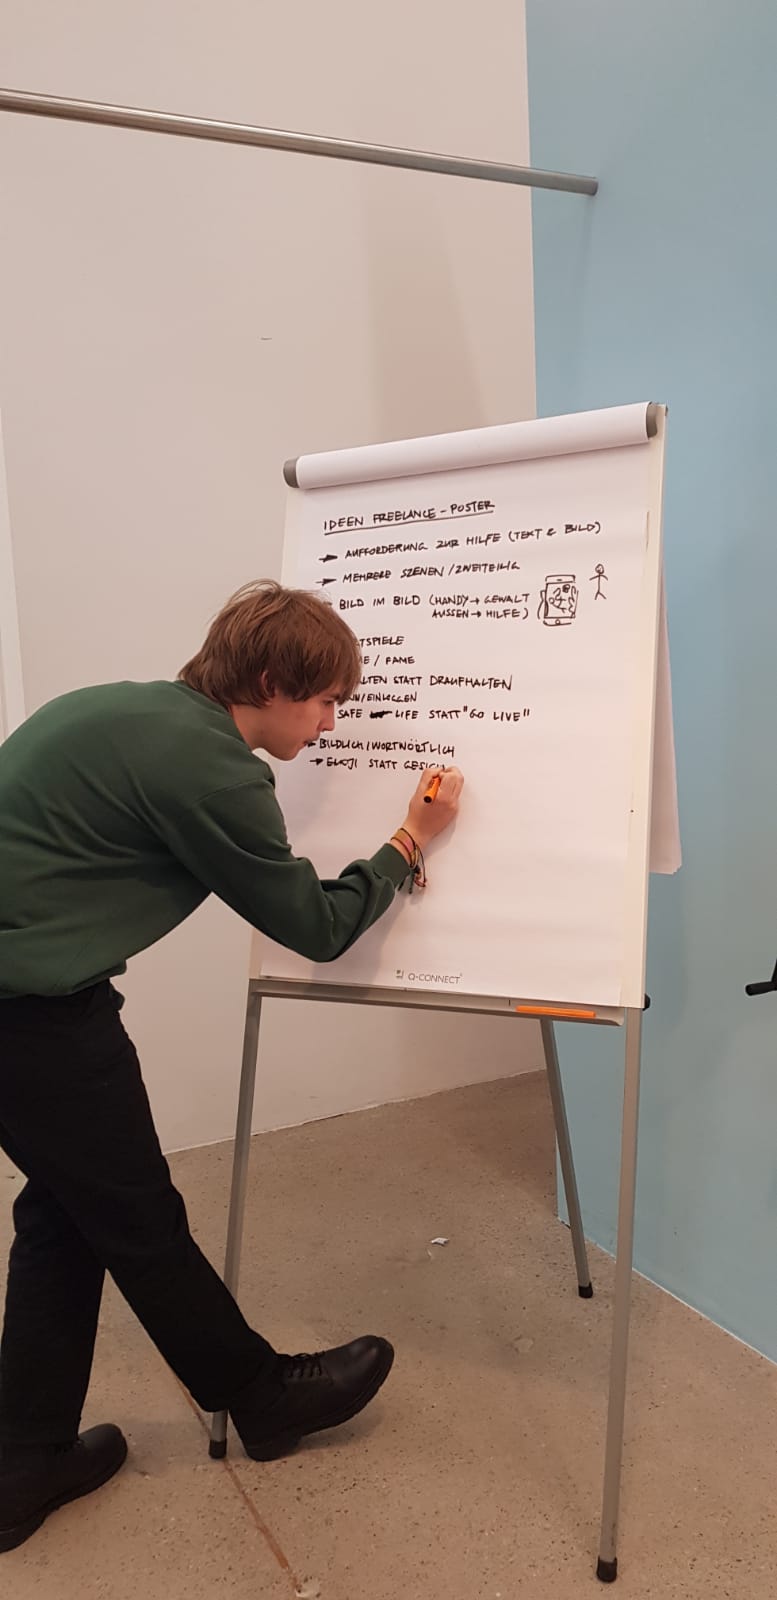 IDEEN FREELANCE - POSTER
→ AUFFORDERUNG ZUR HILFE (TEXT & BILD)
→ MEHRERE SZENEN / ZWEITEILIG
BILD IM BILD (HANDY → GEWALT
AUSSEN → HILFE)
TSPIELE
E / FAME
LTEN STATT DRAUFHALTEN
/EINLOGGEN
SAFE LIFE STATT "GO LIVE"
→ BILDLICH / WORTWÖRTLICH
→ EMOJI STATT GESICH
Q-CONNECT